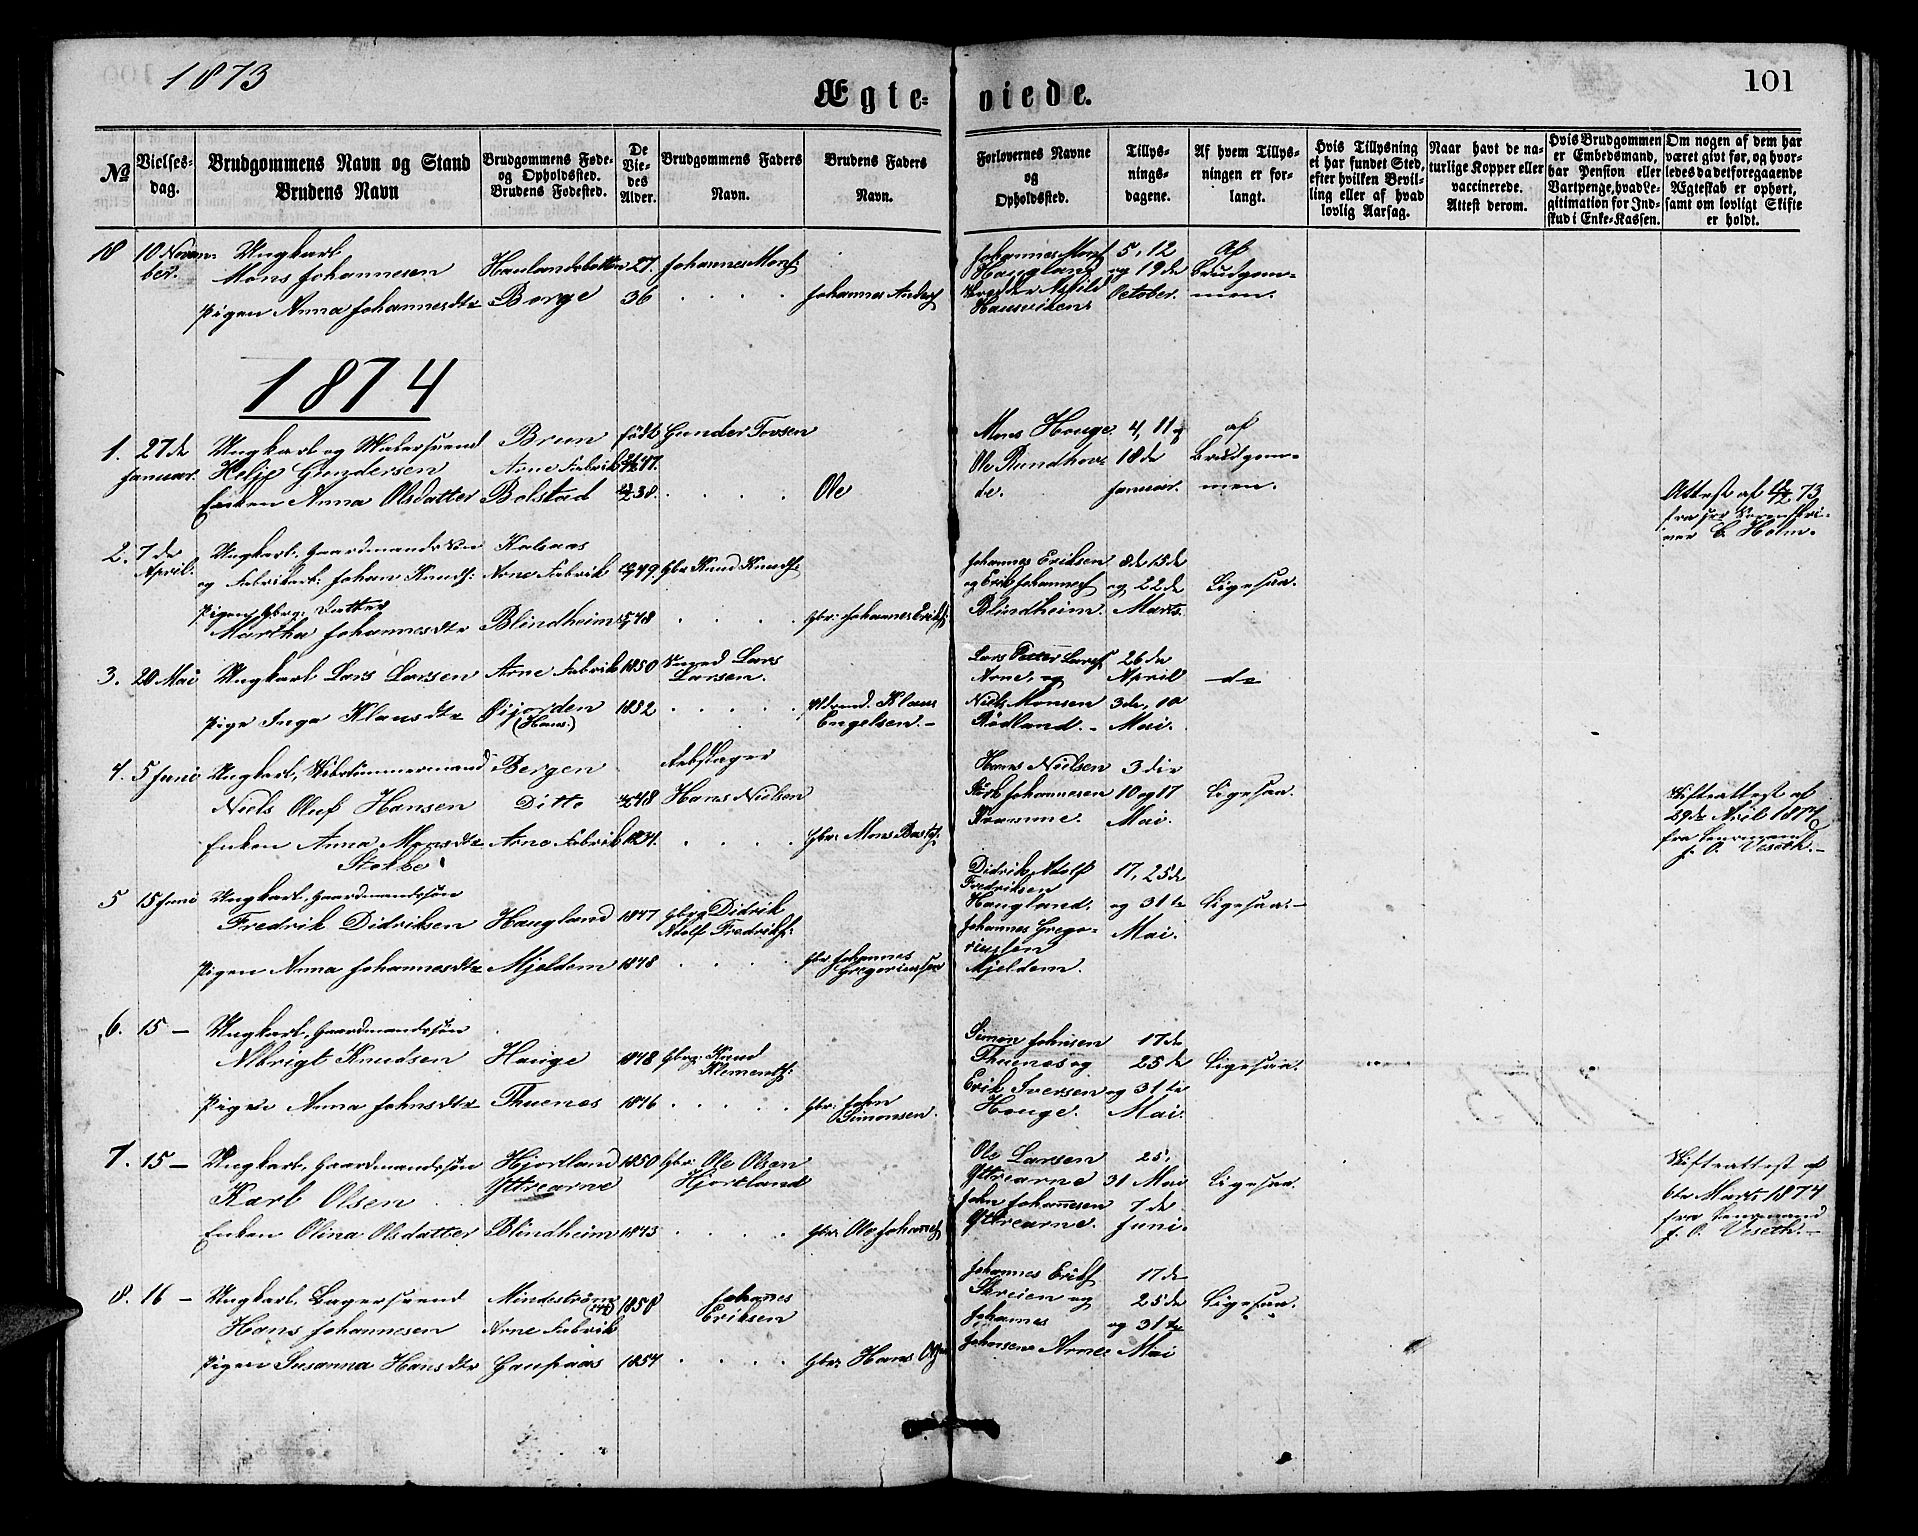 1873
Ægte-
viede.
101
No
Vielses-
dag.
Brudgommens Navn og Stand
Brudens Navn
Brudgommens Føde-
og Opholdssted.
Brudens Fødested.
De
Vie-
des
Alder.
Brudgommens Faders
Navn.
Brudens Faders
Navn.
Forlovernes Navne
og
Opholdssted.
Tillys-
nings-
dagene.
Af hvem Tillys-
ningen er for-
langt.
Hvis Tillysning
ei har fundet Sted,
efter hvilken Bevil-
ling eller af hvad
lovlig Aarsag.
Naar havt de na-
turlige Kopper eller
vaccinerede.
Attest derom.
Hvis Brudgommen
er Embedsmand,
har Pension eller
Vartpenge, hvad Le-
gitimation for Ind-
skud i Enke-Kassen.
Om nogen af dem har
været givt før, og hvor-
ledes da det foregaaende
Ægteskab er ophørt,
samt om lovligt Skifte
er holdt.
18 10 Novem-
ber.
Ungkarl
Mons Johannesen
27. Johannes Mons:
Pigen Anna Johannesdtr Borge 36 Johannes Anders
Johannes Mons
Haugland
Hausviken
5, 12
og 19de
October.
Af
Brudgom-
men.
1874
1. 27de
Januar.
Ungkarl og
Helje Gundersen
Enken Anna Olsdatter
Brun
Arne Fabrik
Bolstad
født
47.
38.
Gunder Tovsen
Ole
Mons Houge.
Ole Rundhov-
de.
4, 11
18de
Januar.
af
Brudgom-
men.
Attest af 73
fra
C. Holm.
2. 7de
April.
Ungkarl, Gaardmandssøn
og Johan Knuds:
Pigen Gbrs: Datter
Martha Johannesdtr
Kalsaas
Arne Fabrik
Blindheim
49.
48
Gbr Knud Knuds:
Gbr: Johannes Eriks
Johannes Eriksen
og Erik Johannes
Blindheim.
8de 15de
og 22de
Marts.
Ligesaa.
3. 20 Mai
Ungkarl Lars Larsen
Pige Inga Klausdtr
Arne Fabrik
Øijorden
(Haus.)
1850
1852
Lars
Larsen.
Klaus
Engelsen.
Lars Petter Lars
Arne, og
Niels Monsen
Rødland.
26de
April
3de, 10
Mai.
do
4. 5 Juni
Ungkarl, Skibstømmermand
Niels Oluf Hansen
Enken Anna Monsdtr
Stokke
Bergen
Ditto
Arne Fabrik
48
Rebslager
Hans Nielsen
Gbr: Mons
Hans Nielsen
Johannesen
3die
10 og 17
Mai.
Ligesaa.
Skifteattest af
29de April 1874
fra Lensmand
J. O. Veseth.
5 15 Juni
Ungkarl, Gaardmandssøn
Fredrik Didriksen
Pigen Anna Johannesdtr
Haugland
Mjeldem
1847
1848
Gbrg Didrik
Adolf Fredriks:
Gbr Johannes
Gregoriussen
Didrik Adolf
Fredriksen
Haugland.
Johannes Grego-
riussen
Mjeldem.
17, 25de
og 31te
Mai.
Ligesaa.
6. 15 —
Ungkarl, Gaardmandssøn
Albrigt Knudsen
Pigen Anna Johnsdtr
Hauge
Thuenes
1848
1846
Gbrg: Knud
Klements:
Gbr: John
Simonsen.
Simon Johnsen
Thuenes og
Erik Iversen
Houge.
17de
25de
og 31te
Mai.
Ligesaa.
7. 15 —
Ungkarl, Gaardmandssøn
Karl Olsen
Enken Olina Olsdatter
Hjortland
Yttrearne
Blindheim
1850
1843
Gbr: Ole Olsen
Hjortland
Gbr: Ole Johannes
Ole Larsen
Yttrearne
John Johannesen
Yttrearne.
25,
31 Mai
7de
Juni.
Ligesaa.
Skifteattest af
6te Marts 1874
fra Lensmand
J. O. Veseth.
8. 16 —
Ungkarl, Lagersvend
Hans Johannesen
Pigen Susanna Hansdtr
Mindeström
Arne Fabrik
Gaupaas
1850
1854
Johanes
Eriksen
Gbr Hans
Johannes Eriks
Skreien og
Johannes
Johnsen Arne
17de
25de
og 31te
Mai
Ligesaa.